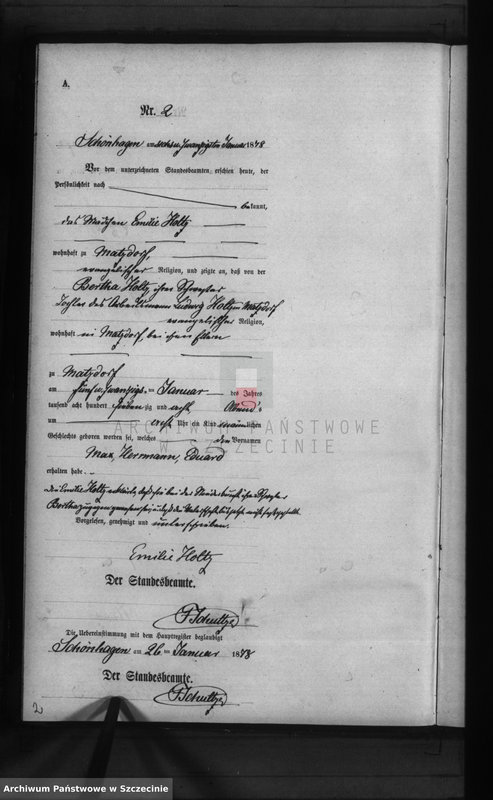 A.
Nr. 2
Schönhagen am sechs u. zwanzigsten Januar 1878
Vor dem unterzeichneten Standesbeamten erschien heute, der
Persönlichkeit nach
bekannt,
das Mädchen Emilie Holtz
wohnhaft zu Matzdorf,
evangelischer Religion, und zeigte an, daß von der
Bertha Holtz, ihrer Schwester
Tochter des Arbeitsmann Ludwig Holtz in Matzdorf
evangelischer Religion,
wohnhaft in Matzdorf, bei ihren Eltern
zu Matzdorf
am fünf u. zwanzigs. ten Januar des Jahres
tausend acht hundert sieben zig und acht Abends
um acht Uhr ein Kind männlichen
Geschlechts geboren worden sei, welches den Vornamen
Max, Hermann, Eduard
erhalten habe.
Die Emilie Holtz erklärte, daß sie bei der Niederkunft ihrer Schwester
Bertha zugegen gewesen sei
Vorgelesen, genehmigt und unterschrieben.
Emilie Holtz
Der Standesbeamte.
Schultze
Die Uebereinstimmung mit dem Hauptregister beglaubigt
Schönhagen am 26 ten Januar 1878
Der Standesbeamte.
Schultze
2
ARCHIWUM PAŃSTWOWE
W SZCZECINIE
Archiwum Państwowe w Szczecinie